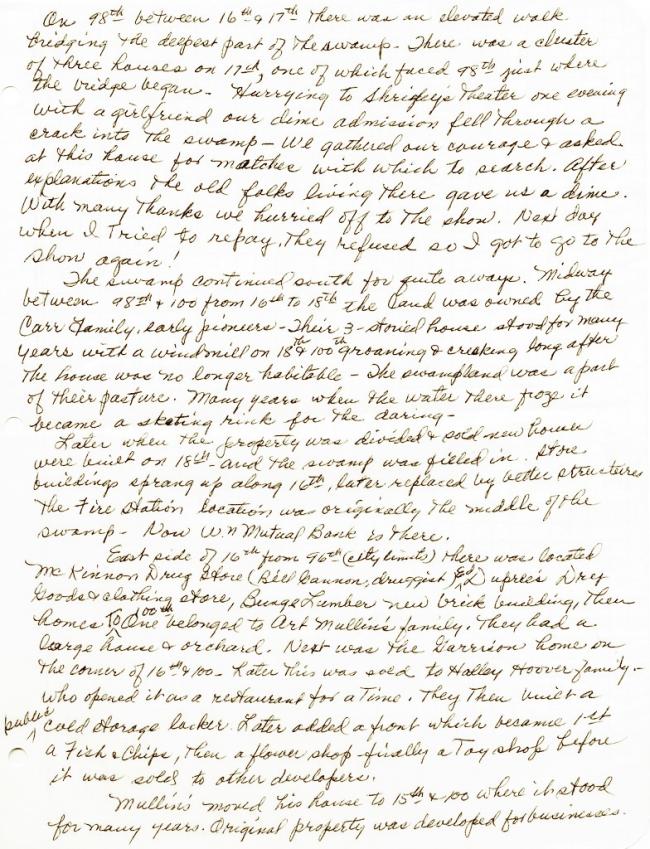 On 98th between 16th & 17th there was an elevated walk
bridging the deepest part of the swamp - There was a cluster
of three houses on 17th, one of which faced 98th just where
the bridge began - Hurrying to Theater one evening
with a girlfriend our dime admission fell through a
crack into the swamp - We gathered our courage & asked
at this house for matches with which to search. After
explanations the old folks living there gave us a dime.
With many thanks we hurried off to the show. Next day
when I tried to repay, they refused so I got to go to the
show again!
The swamp continued south for quite aways. Midway
between 98th & 100 from 16th to 18th the land was owned by the
Carr family, early pioneers - Their 3-storied house stood for many
years with a windmill on 18th & 100th groaning & creaking long after
the house was no longer habitable - The swampland was a part
of their pasture. Many years when the water there froze it
became a skating rink for the daring -
Later when the property was divided & sold new houses
were built on 18th - and the swamp was filled in. Store
buildings sprang up along 16th, later replaced by better structures
The Fire Station location was originally the middle of the
swamp - Now Wn Mutual Bank is there.
East side of 16th from 96th (city limits) there was located
McKinnon Drug Store (Bill Cannon, druggist) Ed Dry
Goods & clothing store, Bunge Lumber new brick building, then
homes to 100th One belonged to Art Mullin's family. They had a
large house & orchard. Next was the Garrison home on
the corner of 16th & 100 - Later this was sold to Halley Hoover family -
who opened it as a restaurant for a time. They then built a
public cold storage locker. Later added a front which became 1st
a Fish & Chips, then a flower shop - finally a Toy shop before
it was sold to other developers.
Mullin's moved his house to 15th & 100 where it stood
for many years. Original property was developed for businesses.